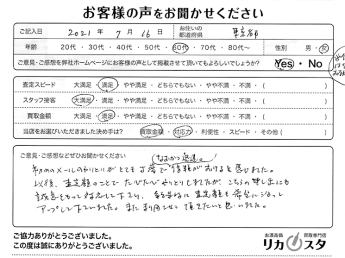 お客様の声をお聞かせください
ご記入日 2021年 7月 16日 お住いの都道府県 東京都
年齢 20代・30代・40代・50代・60代・70代・80代 性別 男・女
ご意見・ご感想を弊社ホームページにお客様の声として掲載させて頂いてもよろしいでしょうか? Yes・No
査定スピード 大満足・満足・やや満足・どちらでもない・やや不満・不満・( )
スタッフ接客 大満足・満足・やや満足・どちらでもない・やや不満・不満・( )
買取金額 大満足・満足・やや満足・どちらでもない・やや不満・不満・( )
当店をお選びいただきました決め手は? 買取金額・対応力・利便性・スピード・その他( )
ご意見・ご感想などぜひお聞かせください
初めのメールのやりとりがとても丁寧で信頼がおけると思いました。
以後、査定額のことでたびたびやりとりしましたが、こちらの申し出にも
誠意をもって
アップして下さいました。また利用させて頂きたいと思いました。
ご協力ありがとうございました。
この度は誠にありがとうございました。
お酒高価買取専門店
リカスタ